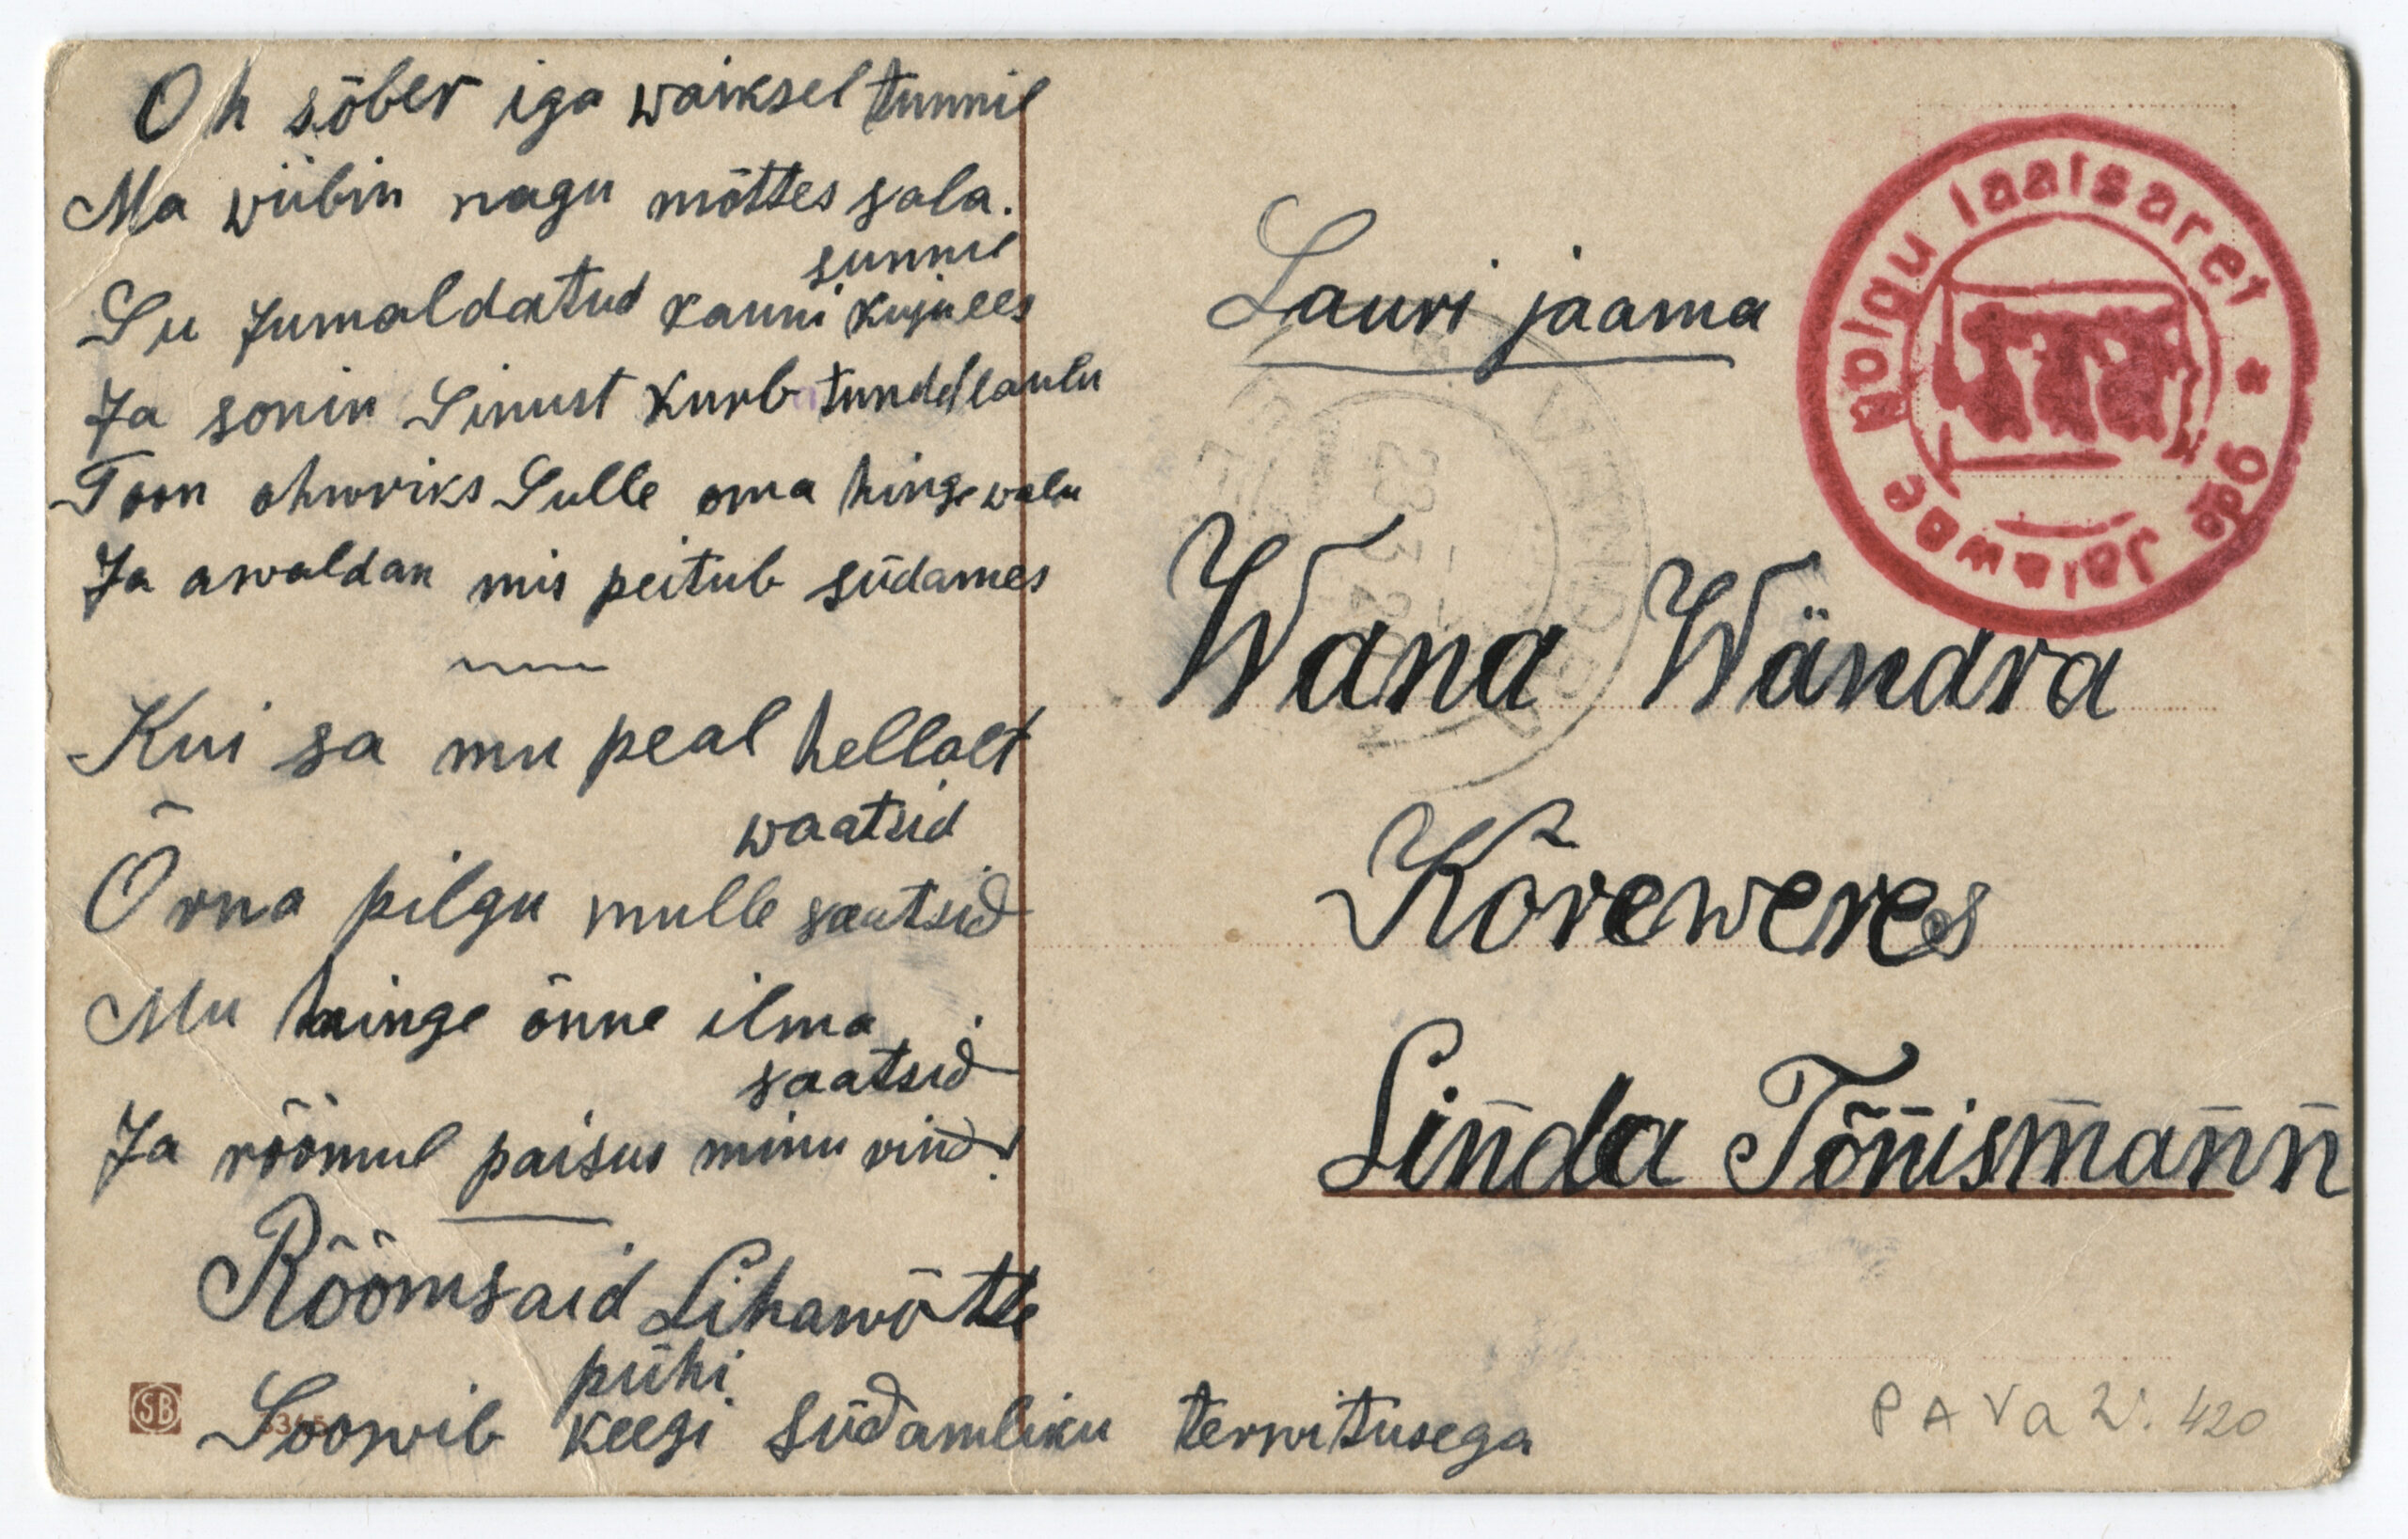 Oh sõber iga waiksel tunnil
Ma wiibin nagu mõttes sala.
sunnil
Su Jumaldatud kauni kuju ees
Ja sonin Sinust kurb tundel laulu
Toon ohwriks Sulle oma hinge walu
Ja awaldan mis peitub südames
Kui sa mu peal hellalt
waatsid
Õrna pilgu mulle saatsid
Mu hinge õnne ilma
saatsid
Ja rõõmul paisus minu rind!
Rõõmsaid Lihawõtte
pühi
Soowib keegi südamliku terwitusega
SB
Lauri jaama
Wana Wändra
Kõreweres
Linda Tõnismann
VÄNDRA
23
PAVa W. 420